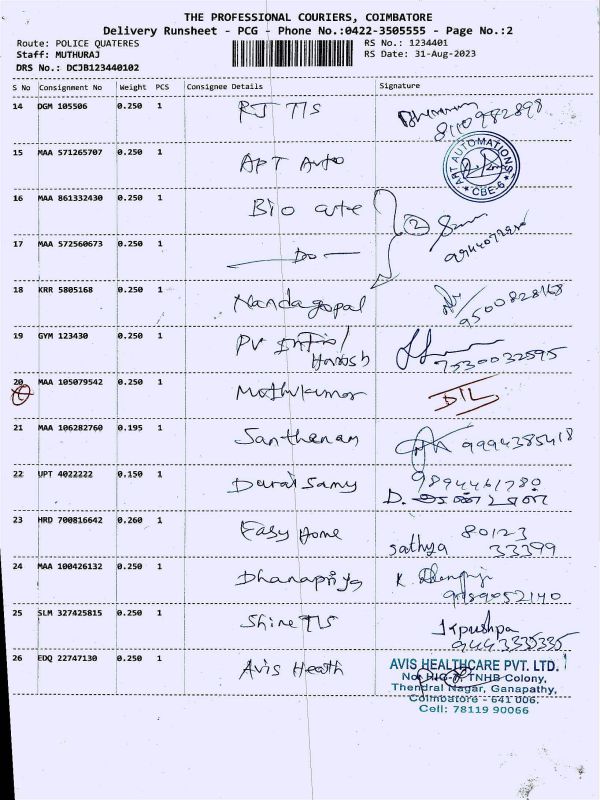 THE PROFESSIONAL COURIERS, COIMBATORE
Delivery Runsheet - PCG - Phone No.:0422-3505555 - Page No.:2
Route: POLICE QUATERES
RS No.: 1234401
Staff: MUTHURAJ
RS Date: 31-Aug-2023
DRS No.: DCJB123440102
S No Consignment No Weight PCS Consignee Details Signature
14 DGM 105506 0.250 1 RJ Tls
8110982898
15 MAA 571265707 0.250 1 APT Auto
ART AUTOMATIONS
CBE-6
16 MAA 861332430 0.250 1 Bio cute
2
17 MAA 572560673 0.250 1 — Do —
18 KRR 5805168 0.250 1 Nandagopal
9500828168
19 GYM 123430 0.250 1 PV Infio/
Haresh
7530032595
20 MAA 105079542 0.250 1 Mothukumar DTL
21 MAA 106282760 0.195 1 Santhanam 9994385418
22 UPT 4022222 0.150 1 Durai Samy 9894461780
D.
23 HRD 700816642 0.260 1 Easy Home 80123
sathya 33399
24 MAA 100426132 0.250 1 Dhanapriya K.
9489052140
25 SLM 327425815 0.250 1 Shine Tls J.Kpushpa
9443335335
26 EDQ 22747130 0.250 1 Avis Heath
AVIS HEALTHCARE PVT. LTD.
TNHB Colony,
Thendral Nagar, Ganapathy,
Coimbatore - 641 006.
Cell: 78119 90066